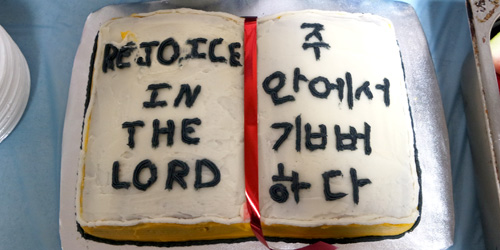 REJOICE
IN
THE
LORD
주
안에서
기쁘버
하다